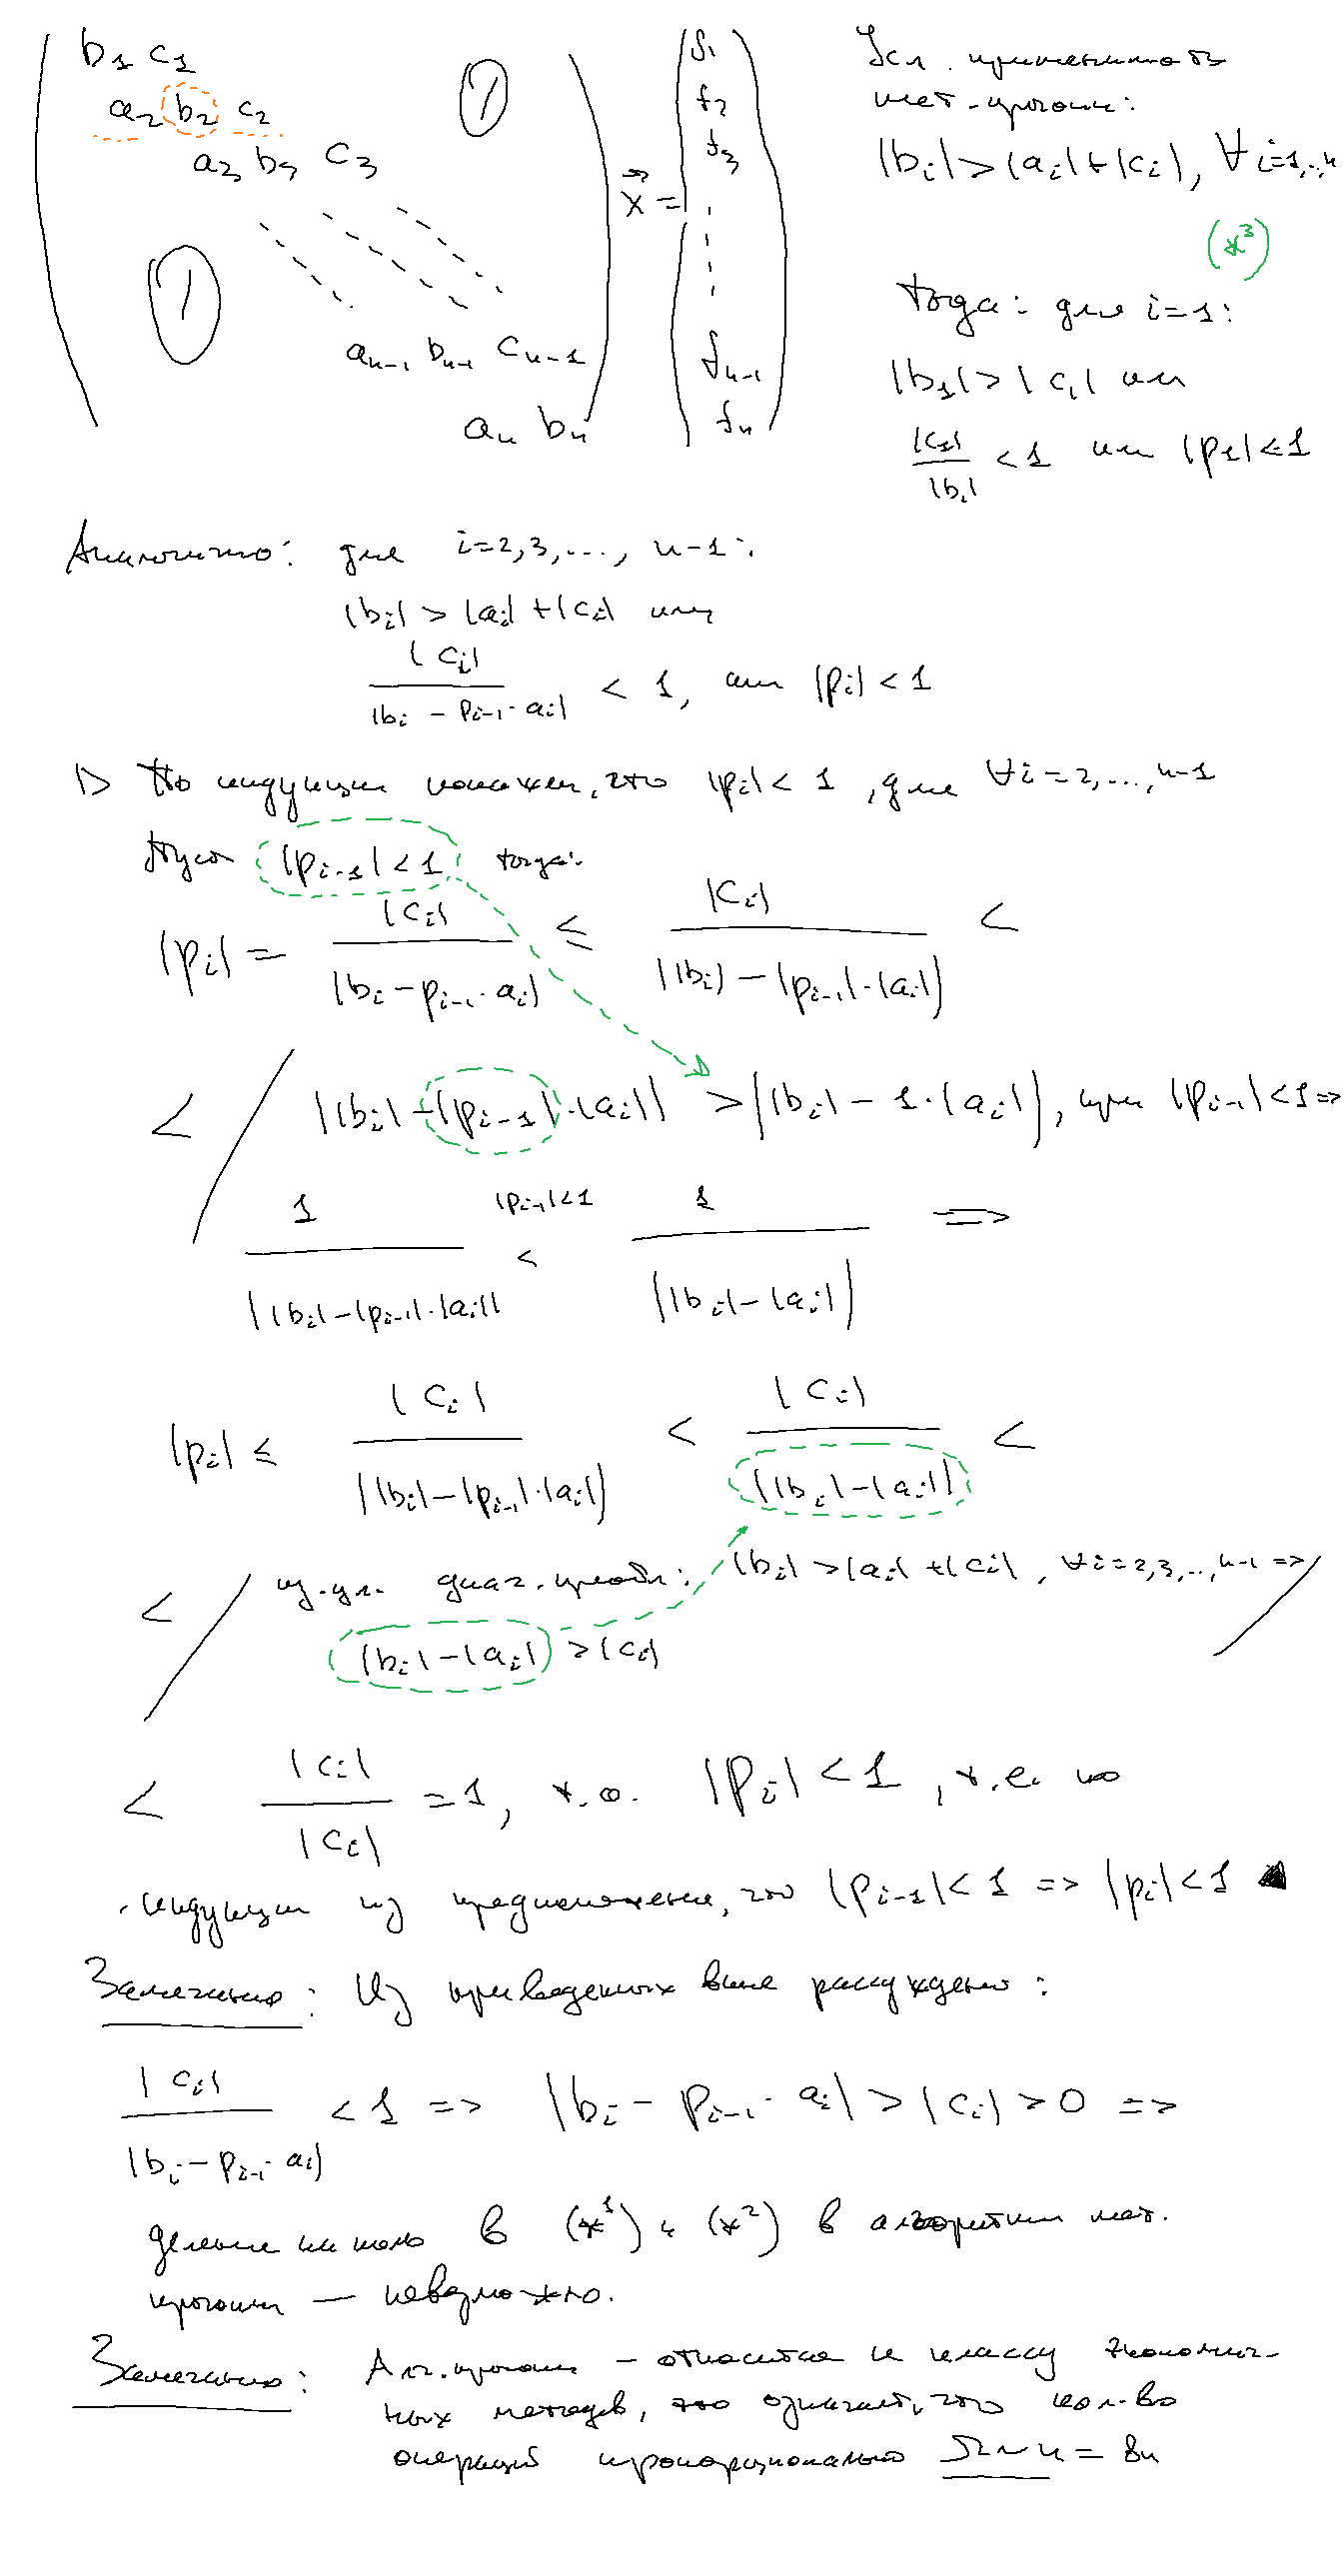 b₁ c₁
a₂ b₂ c₂
a₃ b₃ c₃
a_{n-1} b_{n-1} c_{n-1}
a_n b_n
x⃗ =
f₁
f₂
f₃
f_{n-1}
f_n
Усл. применимость
мет. прогонки:
|b_i| > |a_i| + |c_i|, ∀ i=1,..,n
(*³)
тогда: для i=1:
|b₁| > |c₁| или
|c₁| / |b₁| < 1 или |p₁| < 1
Аналогично: для i=2,3,..., n-1:
|b_i| > |a_i| + |c_i| или
|c_i| / |b_i - p_{i-1}·a_i| < 1, или |p_i| < 1
▷ По индукции покажем, что |p_i| < 1, для ∀ i=2,...,n-1
Пусть |p_{i-1}| < 1 тогда:
|p_i| = |c_i| / |b_i - p_{i-1}·a_i| ≤ |c_i| / ||b_i| - |p_{i-1}|·|a_i|| <
< / ||b_i| - |p_{i-1}|·|a_i|| > ||b_i| - 1·|a_i||, при |p_{i-1}| < 1 =>
1 / ||b_i| - |p_{i-1}|·|a_i|| <^{|p_{i-1}|<1} 1 / ||b_i| - |a_i|| =>
|p_i| ≤ |c_i| / ||b_i| - |p_{i-1}|·|a_i|| < |c_i| / ||b_i| - |a_i|| <
< / из ул. диаг. преобл: |b_i| > |a_i| + |c_i|, ∀ i=2,3,...,n-1 => /
|b_i| - |a_i| > |c_i|
< |c_i| / |c_i| = 1, т.о. |p_i| < 1, т.е. по
индукции из предположения, что |p_{i-1}| < 1 => |p_i| < 1
Замечание: Из приведенных выше рассуждений:
|c_i| / |b_i - p_{i-1}·a_i| < 1 => |b_i - p_{i-1}·a_i| > |c_i| > 0 =>
деление на ноль в (*¹) и (*²) в алгоритме мет.
прогонки — невозможно.
Замечание: Алг. прогонки - относится к классу экономич-
ных методов, это означает, что кол-во
операций пропорционально Ω ~ n = 8n